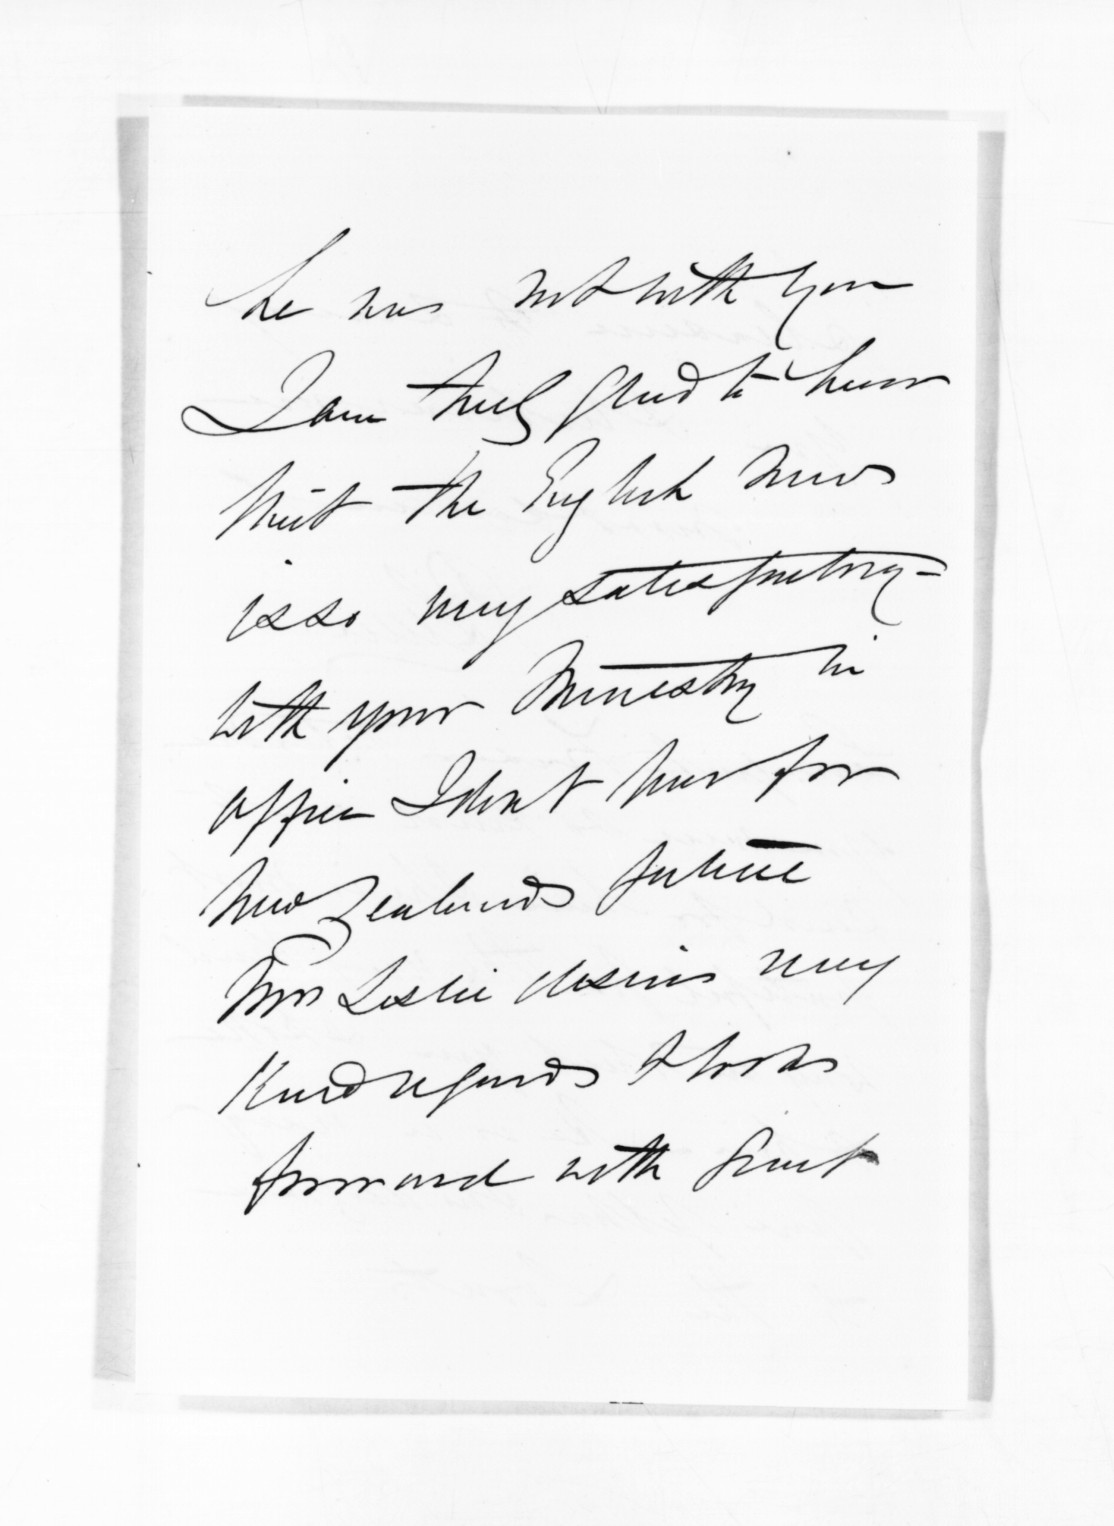 he was not with you
I am truly glad to hear
that the English news
is so very satisfactory -
with your Ministry in
office I dont fear for
New Zealands future
Mrs Leslie desires very
kind regards & looks
forward with great